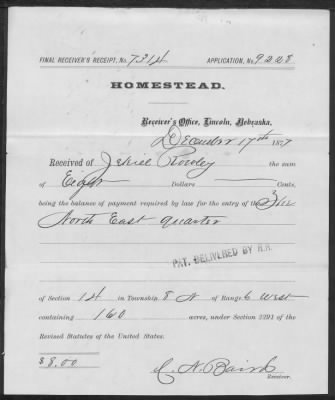 FINAL RECEIVER'S RECEIPT, No. 7314 APPLICATION, No. 9228
HOMESTEAD.
Receiver's Office, Lincoln, Nebraska,
December 17th 1877
Received of Rowley the sum
of Eight Dollars Cents,
being the balance of payment required by law for the entry of the
North East quarter
PAT. DELIVERED BY R.R.
of Section 14 in Township 8 N of Range 6 West
containing 160 acres, under Section 2291 of the
Revised Statutes of the United States.
$8.00
C. N. Baird
Receiver.